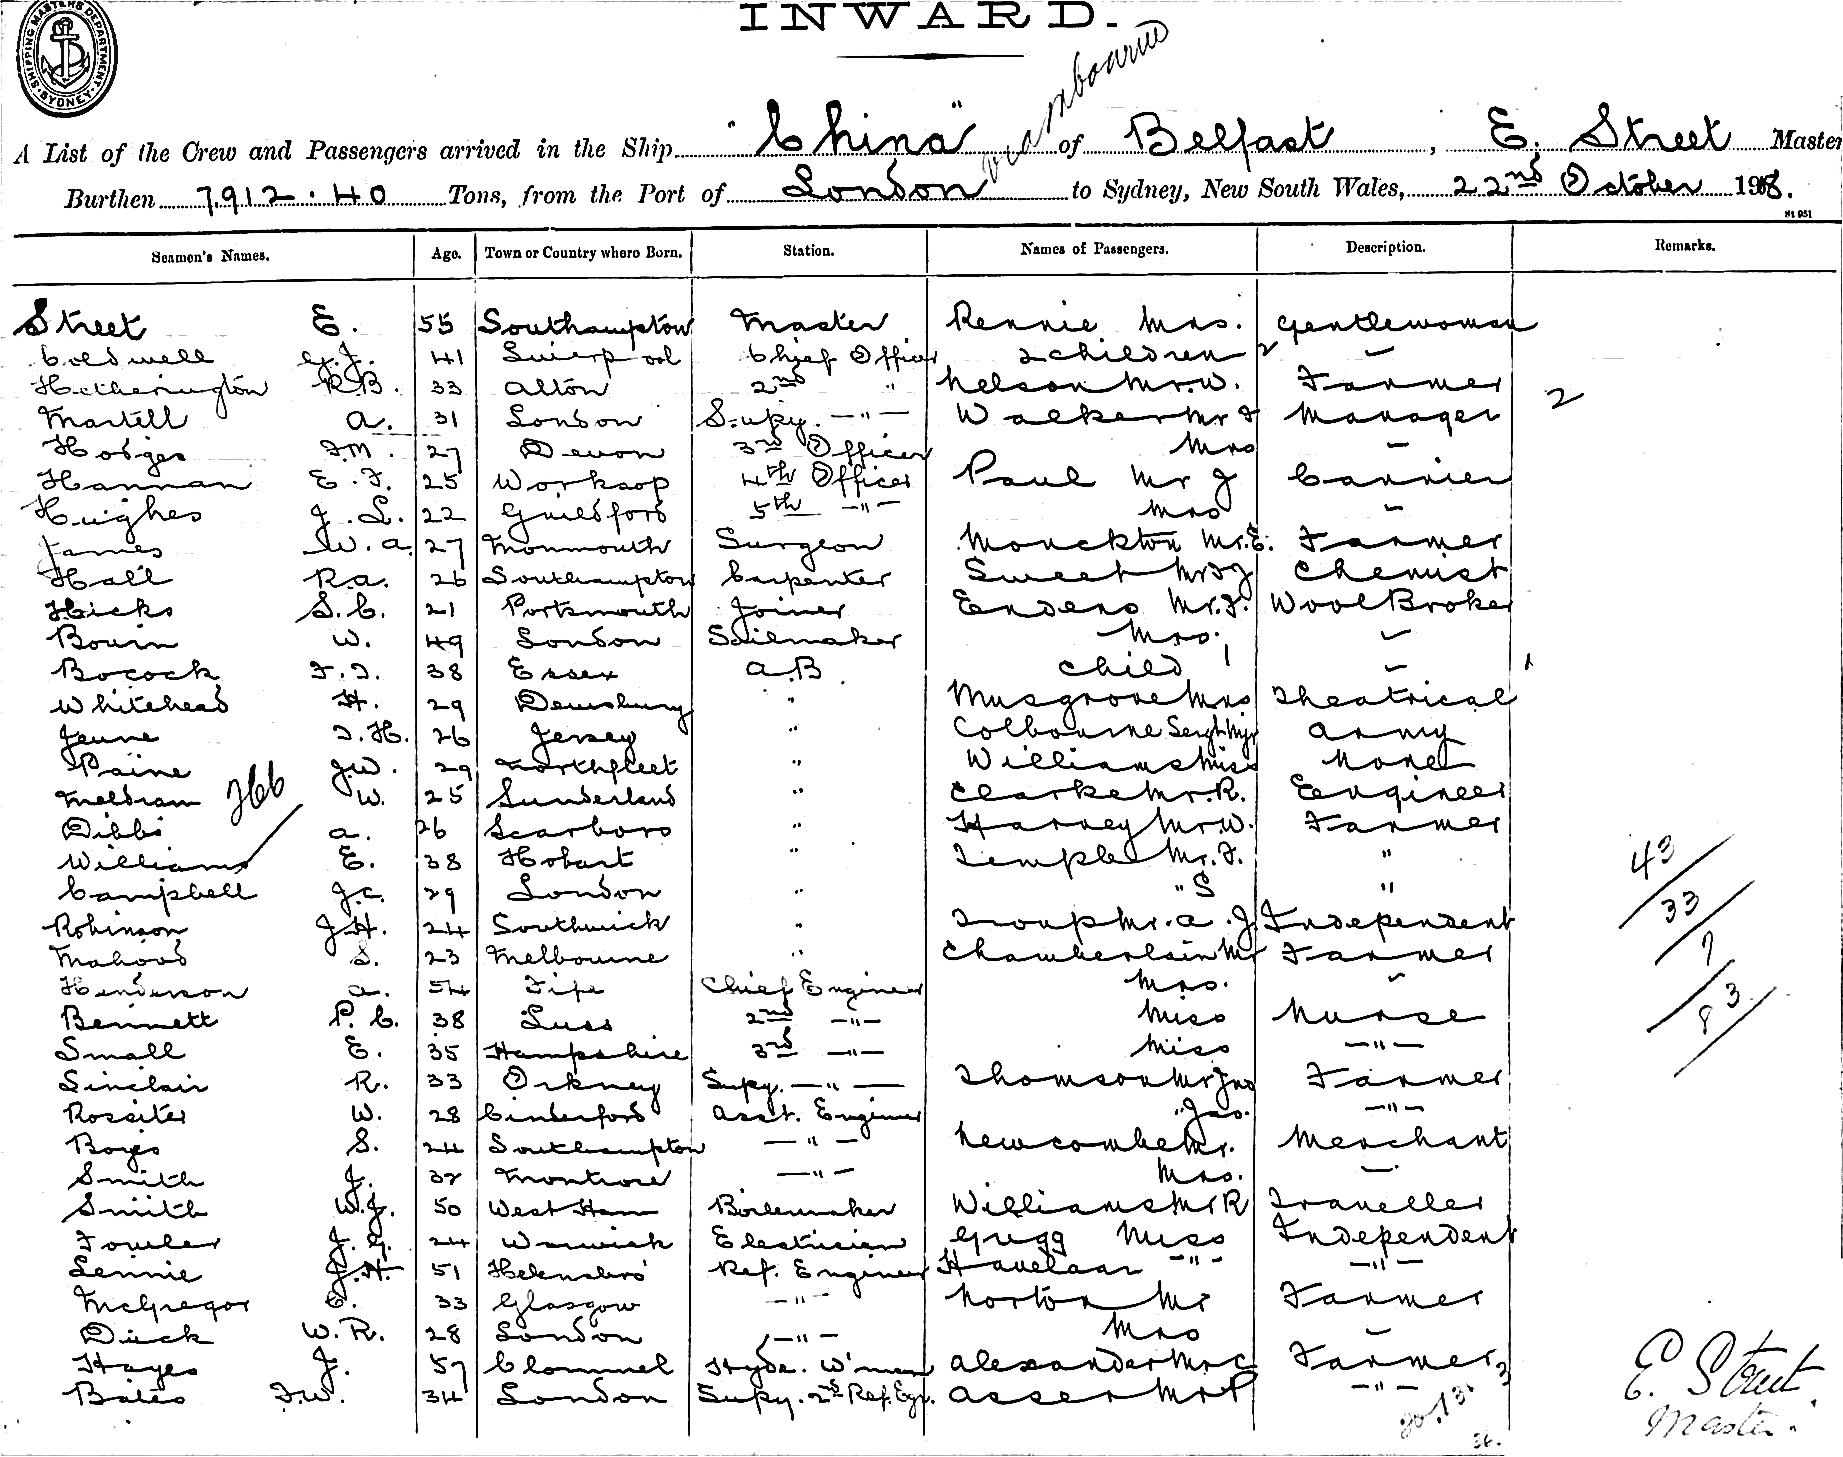 INWARD.
SHIPPING MASTERS DEPARTMENT SYDNEY
via Mbourne
A List of the Crew and Passengers arrived in the Ship "China" of Belfast, E. Street Master
Burthen 7912.40 Tons, from the Port of London to Sydney, New South Wales, 22nd October 1908.
Seamen's Names. Age. Town or Country where Born. Station. Names of Passengers. Description. Remarks.
Street E. 55 Southampton Master Rennie Mrs. Gentlewoman
Coldwell G.J. 41 Liverpool Chief Officer 2 children 2 "
Hetherington R.B. 33 Alton 2nd " Nelson Mr. W. Farmer 2
Martell A. 31 London Supy. -"- Walker Mr J Manager
Hodges F.M. 27 Devon 3rd Officer Mrs -
Hannan E.F. 25 Worksop 4th Officer Paul Mr J Carrier
Hughes J.L. 22 Guildford 5th -"- Mrs -
James W.A. 27 Monmouth Surgeon Monckton Mr. E. Farmer
Hall R.A. 26 Southampton Carpenter Sweet Mr J Chemist
Hicks S.C. 21 Portsmouth Joiner Enders Mr. F. Wool Broker
W. 49 London Sailmaker Mrs. -
Bocock F.J. 38 Essex A.B Child 1 - 1
Whitehead H. 29 Dewsbury " Musgrove Mrs Theatrical
Jeune J.H. 26 Jersey " Colbourne Sergt Mjr Army
Paine J.W. 29 Northfleet " Williams Miss None
Meldram W. 25 Sunderland " Clarke Mr. R. Engineer
266
Dibbs A. 26 Scarboro " Harvey Mr. W. Farmer
Williams E. 38 Hobart " Temple Mr. F. "
Campbell J.C. 29 London " " S "
Robinson J.H. 24 Southwick " Troup Mr. A. J Independent
Mahood S. 23 Melbourne " Chamberlain Mr Farmer
Henderson A. 54 Fife Chief Engineer Mrs. -
Bennett P.C. 38 Luss 2nd -"- Miss Nurse
Small E. 35 Hampshire 3rd -"- Miss -"-
Sinclair R. 33 Orkney Supy. -"- Thomson Mr Jno Farmer
Rossiter W. 28 Cinderford Asst. Engineer " Jas. -"-
Boyes S. 24 Southampton -"- Newcombe Mr. Merchant
Smith J. 32 Montrose -"- Mrs. -
Smith W.J. 50 West Ham Boilermaker Williams Mr R Traveller
Fowler J.G. 24 Warwick Electrician Gregg Miss Independent
Lennie J.H. 51 Helensbro' Ref. Engineer Havelaar -"- -"-
McGregor C. 33 Glasgow -"- Norton Mr Farmer
Duck W.R. 28 London -"- Mrs -
Hayes J. 57 Clonmel Hyde. W'man Alexander Mr C Farmer 3
Bates F.W. 34 London Supy. 2nd Ref. Egr. Asser Mr P -"-
36.
43
33
7
83
E. Street
Master.